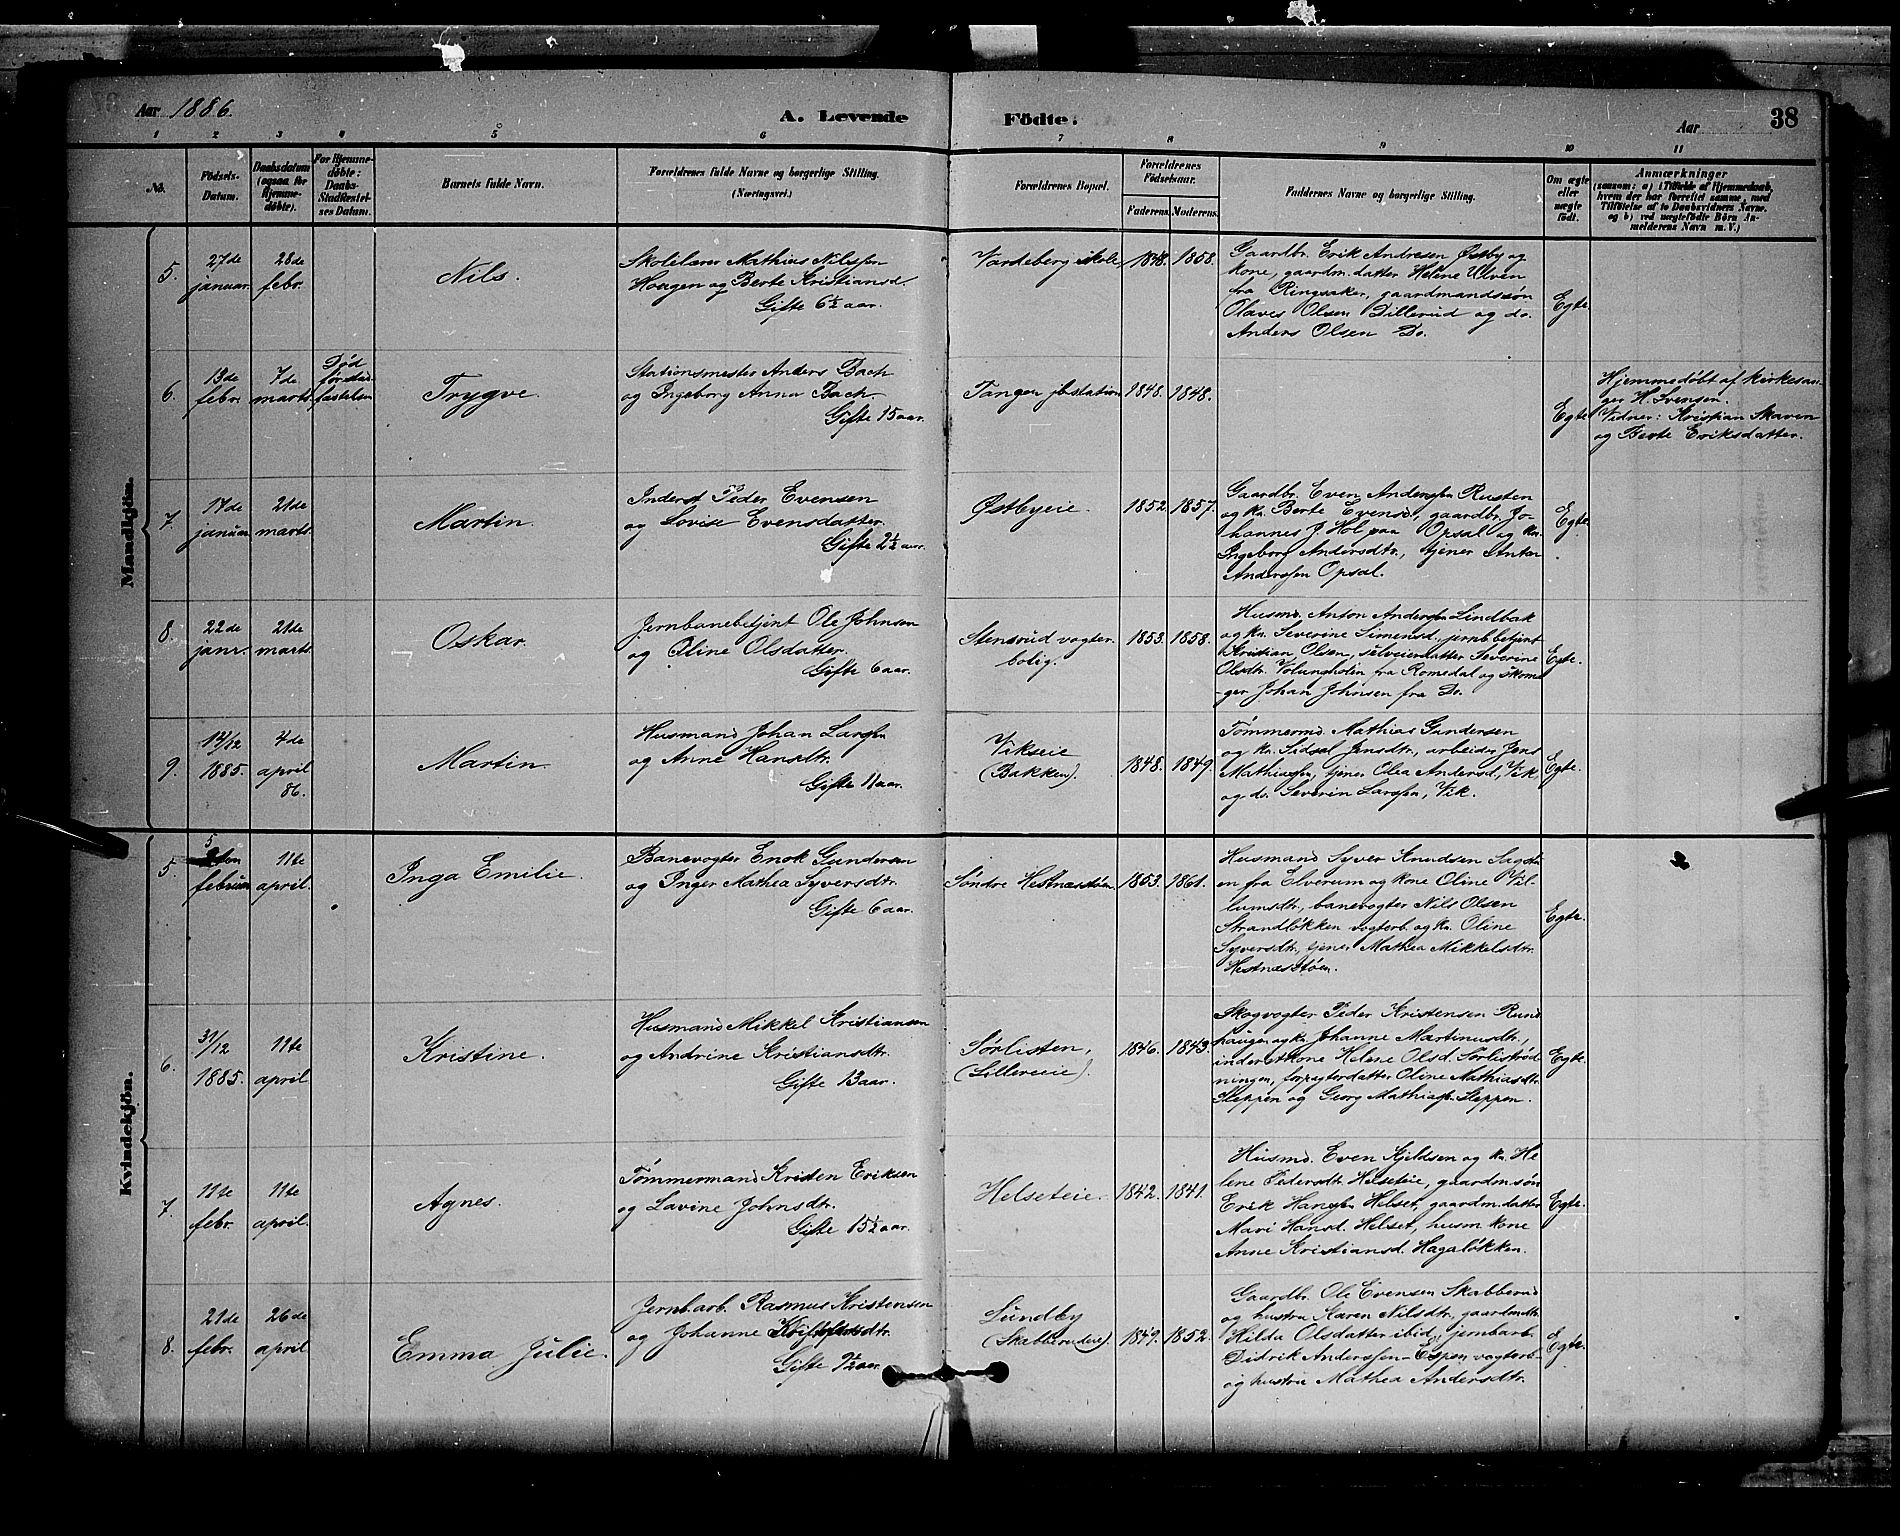 Aar 1886.
A. Levende Födte.
Aar
38
1 2 3 4 5 6 7 8 9 10 11
No.
Födsels-
Datum.
Daabsdatum
(ogsaa for
Hjemme-
döbte).
For Hjemme-
döbte:
Daabs-
Stadfæstel-
ses Datum.
Barnets fulde Navn.
Forældrenes fulde Navne og borgerlige Stilling.
(Næringsvei.)
Forældrenes Bopæl.
Forældrenes
Födselsaar.
Faderens. Moderens.
Faddernes Navne og borgerlige Stilling.
Om ægte
eller
uægte
födt.
Anmærkninger
(saasom: a) i Tilfælde af Hjemmedaab,
hvem der har forrettet samme, med
Tilföielse af to Daabsvidners Navne,
og b) ved uægtefödte Börn An-
melderens Navn m. V.)
Mandkjön.
5.
27de
januar.
28de
febr.
Nils.
Skolelærer Mathias Nilssen
Hougen og Berte Kristiansd.
Gifte 6½ aar.
Vardeberg skole
1848. 1858.
Gaardbr. Erik Andresen Østby og
kone, gaardm.datter Helene Ulven
fra Ringsaker, gaardmandssøn
Olaves Olsen Dillerud og do.
Anders Olsen Do.
Egte.
6.
13de
febr.
7de
marts.
Død
før stad-
fæstelsen
Trygve.
Stationsmester Anders Bach
og Ingeborg Anna Bach.
Gifte 15 aar.
Tangen jb.station
1848. 1848.
Egte
Hjemmedøbt af kirkesan-
ger H. Svensen.
Vidner: Kristian Skaven
og Berte Eriksdatter.
7.
17de
januar
21de
marts.
Martin.
Inderst Peder Evensen
og Lovise Evensdatter.
Gifte 2½ aar.
Østbyeie.
1852 1857.
Gaardbr. Even Anderssen Rusten
og kn. Berte Evensd., gaardbr. Jo-
hannes J. Hol paa Opsal og kn.
Ingeborg Andersdtr., tjener Anton
Anderssen Opsal.
Egte.
8.
22de
janr.
21de
marts.
Oskar.
Jernbanebetjent Ole Johnsen
og Oline Olsdatter.
Gifte 6 aar.
Stensrud vogter-
bolig.
1853. 1858.
Husmd. Anton Anderssen Lindbak
og kn. Severine Simensd., jernb.betjent
Kristian Olsen, selveierdatter Severine
Olsdtr. Volungholen fra Romedal og skoma-
ger Johan Johnsen fra Do.
Egte.
9.
14/12
1885.
4de
april
86.
Martin.
Husmand Johan Larssen
og Anne Hansdtr.
Gifte 11 aar.
Vikseie
(Bakken).
1848. 1849.
Tømmermd. Mathias Gundersen
og kn. Sidsel Jensdtr., arbeider Jens
Mathiassen, tjener Olea Andersd., Vik,
og do. Severin Larssen, Vik.
Egte.
Kvindekjön.
5.
5
februar
11te
april.
Inga Emilie.
Banevogter Enok Gundersen
og Inger Mathea Syversdtr.
Gifte 6 aar.
Søndre Hestnæstøen
1853. 1861.
Husmand Syver Knudsen Sagstu-
en fra Elverum og kone Oline Vil-
lumsdtr., banevogter Nils Olsen
Strandløkken vogterb. og kn. Oline
Syversdtr., tjener Mathea Mikkelsdtr.
Hestnæsstøen.
Egte.
6.
31/12
1885.
11te
april
Kristine.
Husmand Mikkel Kristiansen
og Andrine Kristiansdtr.
Gifte 13 aar.
Sørlisten,
(Lillereeie).
1846. 1843.
Skogvogter Peder Kristensen Rund-
haugen og kn. Johanne Martinusdtr.,
inderstkone Helene Olsd. Sørlistrød-
ningen, forpagterdatter Oline Mathiasdtr.
Steppen og Georg Mathiass. Steppen.
Egte.
7.
11te
febr.
11te
april.
Agnes.
Tömmermand Kristen Eriksen
og Lavine Johnsdtr.
Gifte 15½ aar.
Helseteie.
1842. 1841.
Husmd. Even Kjeldsen og kn. He-
lene Pedersdtr. Helseteie, gaardm.søn
Erik Hanssen Helset, gaardm.datter
Mari Hansd. Helset, husm.kone
Anne Kristiansd. Hagaløkken.
Egte.
8.
21de
febr.
26de
april
Emma Julie.
Jernb.arb. Rasmus Kristensen
og Johanne Kristofersdtr.
Gifte 9½ aar.
Lundby
(Skabberudeie).
1849. 1852.
Gaardbr. Ole Evensen Skabberud
og hustru Karen Nilsdtr., gaardm.dtr.
Hilda Olsdatter ibid., jernbarb.
Didrik Anderssen-Espen vogterb.
og hustru Mathea Andersdtr.
Egte.